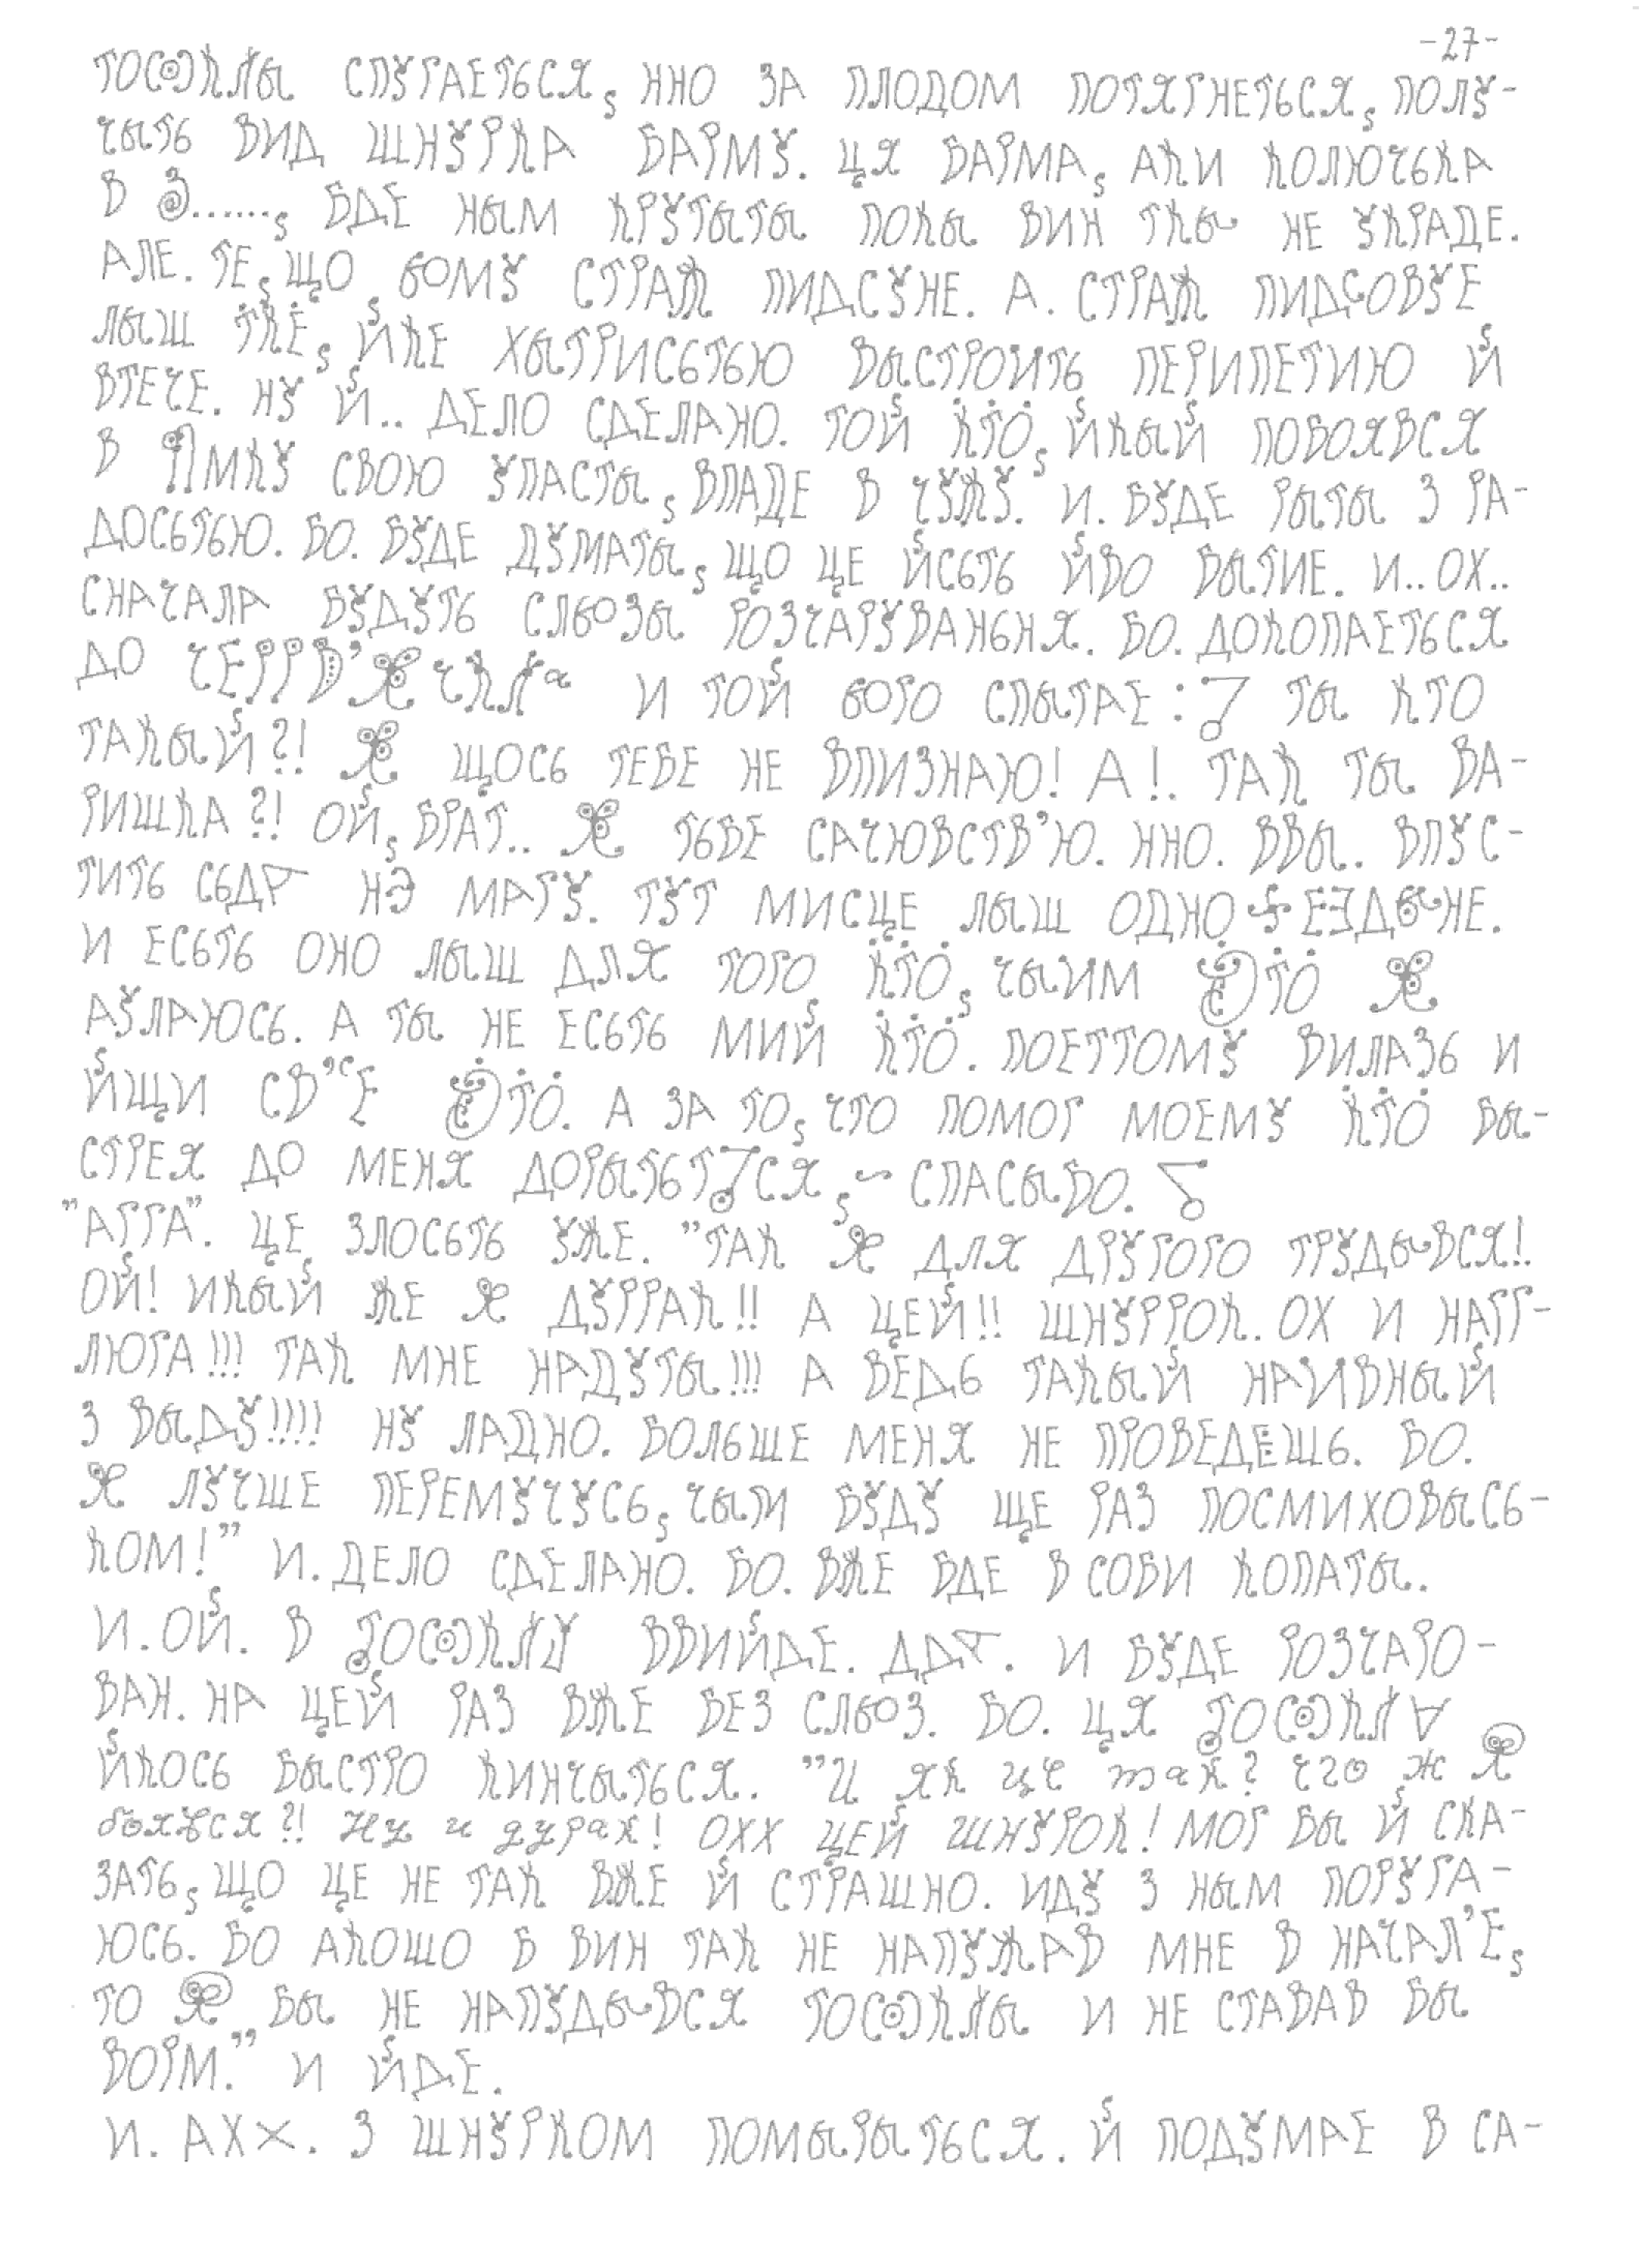 -27-
ТОСОКЛЫ СПУГАЕТЬСЯ, ННО ЗА ПЛОДОМ ПОТЯГНЕТЬСЯ, ПОЛУ-
ЧЫТЬ ВИД ШНУРКА БАРМУ. ЦЯ БАРМА, АКИ КОЛЮЧЬКА
В З......, БДЕ НЫМ КРУТЫТЫ ПОКЫ ВИН НЕ УКРАДЕ.
АЛЕ. ТЕ, ЩО ЬОМУ СТРАЖ ПИДСУНЕ. А. СТРАЖ ПИДСОВУЕ
ЛЫШ ТКЕ, ЙКЕ ХЫТРИСЬТЬЮ ВЫСТРОИТЬ ПЕРИПЕТИЮ Й
ВТЕЧЕ. НУ Й.. ДЕЛО СДЕЛАНО. ТОЙ КТО, ЙКЫЙ ПОБОЯВСЯ
В ЯМКУ СВОЮ УПАСТЫ, ВПАДЕ В ЧУЖУ. И. БУДЕ РЫТЫ З РА-
ДОСЬТЬЮ. БО. БУДЕ ДУМАТЫ, ЩО ЦЕ ЙСЬТЬ ЙВО ВЫТИЕ. И.. ОХ..
СНАЧАЛА БУДУТЬ СЛЬОЗЫ РОЗЧАРУВАНЬНЯ. БО. ДОКОПАЕТЬСЯ
ДО ЧЕРРВ'ЯЧКЛа И ТОЙ ЬОГО СПЫТАЕ: ТЫ КТО
ТАКЫЙ?! Я ЩОСЬ ТЕБЕ НЕ ВПИЗНАЮ! А!. ТАК ТЫ ВА-
РИШКА?! ОЙ, БРАТ.. Я ТЬБЕ САЧЮВСТВ'Ю. ННО. ВВЫ. ВПУС-
ТИТЬ СЬДА НЭ МАГУ. ТУТ МИСЦЕ ЛЫШ ОДНО НЕ.
И ЕСЬТЬ ОНО ЛЫШ ДЛЯ ТОГО КТО, ЧЫИМ ЭТО Я
АУЛАЮСЬ. А ТЫ НЕ ЕСЬТЬ МИЙ КТО. ПОЕТТОМУ ВИЛАЗЬ И
ЙЩИ СВ'СЕ ЭТО. А ЗА ТО, ЧТО ПОМОГ МОЕМУ КТО БЫ-
СТРЕЯ ДО МЕНЯ ДОРЫТЬТСЯ, - СПАСЫБО.
"АГГА". ЦЕ ЗЛОСЬТЬ УЖЕ. "ТАК Я ДЛЯ ДРУГОГО ТРУДЫВСЯ!.
ОЙ! ИКЫЙ ЖЕ Я ДУРРАК!! А ЦЕЙ!! ШНУРРОК. ОХ И НАГГ-
ЛЮГА!!! ТАК МНЕ НАДУТЫ!!! А ВЕДЬ ТАКЫЙ НАИВНЫЙ
З ВЫДУ!!!! НУ ЛАДНО. БОЛЬШЕ МЕНЯ НЕ ПРОВЕДЁШЬ. БО.
Я ЛУЧШЕ ПЕРЕМУЧУСЬ, ЧЫМ БУДУ ЩЕ РАЗ ПОСМИХОВЫСЬ-
КОМ!" И. ДЕЛО СДЕЛАНО. БО. ВЖЕ БДЕ В СОБИ КОПАТЫ.
И. ОЙ. В ТОСОКЛУ ВВИЙДЕ. ДДА. И БУДЕ РОЗЧАРО-
ВАН. НА ЦЕЙ РАЗ ВЖЕ БЕЗ СЛЬОЗ. БО. ЦЯ ТОСОКЛА
ЙКОСЬ БЫСТРО КИНЧЫТЬСЯ. "И як це так? чго ж Я
боявся?! Ну и дурак! ОХХ ЦЕЙ ШНУРОК! МОГ БЫ Й СКА-
ЗАТЬ, ЩО ЦЕ НЕ ТАК ВЖЕ Й СТРАШНО. ИДУ З НЫМ ПОРУГА-
ЮСЬ. БО АКОШО Б ВИН ТАК НЕ НАПУЖАВ МНЕ В НАЧАЛ'Е,
ТО Я БЫ НЕ НАПУДЫВСЯ ТОСОКЛЫ И НЕ СТАВАВ БЫ
ВОРМ." И ЙДЕ.
И. АХХ. З ШНУРКОМ ПОМЫРЫТЬСЯ. Й ПОДУМАЕ В СА-